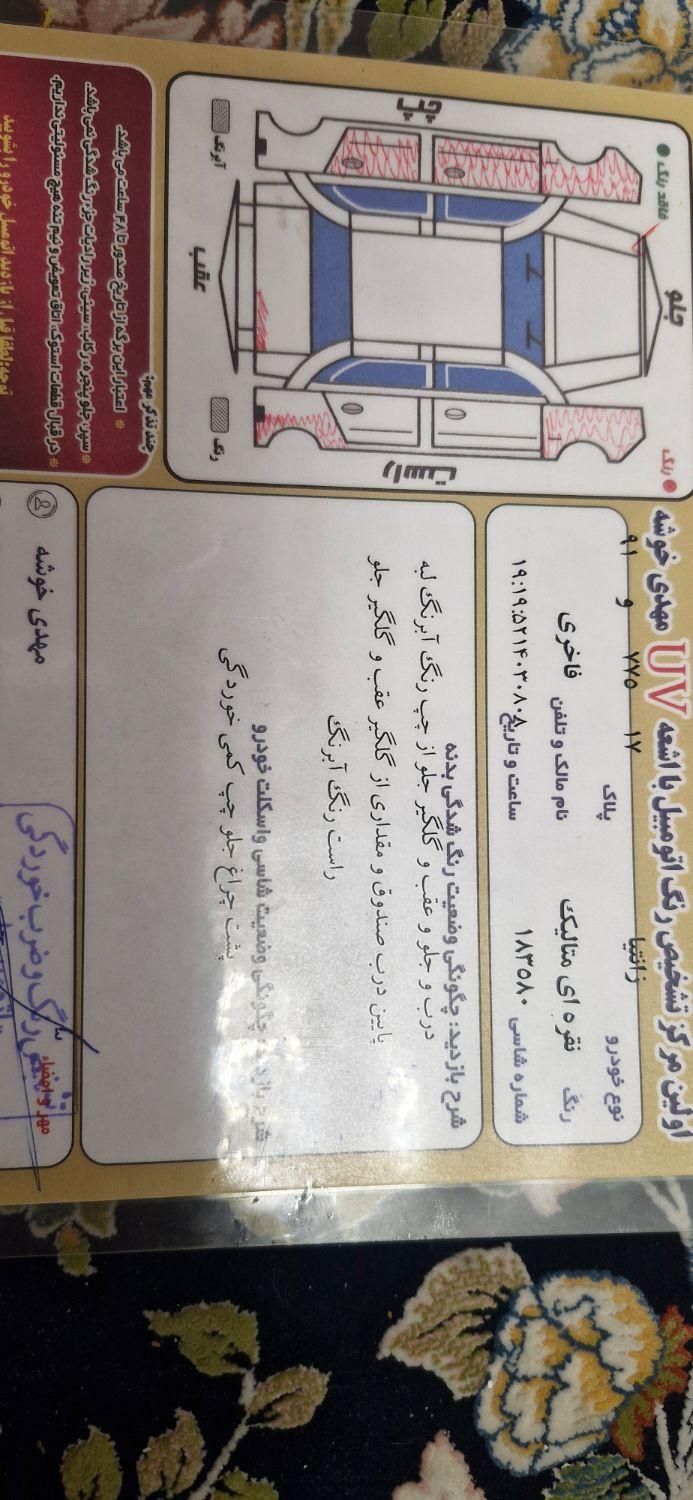 اولین مرکز تشخیص رنگ اتومبیل با اشعه UV مهدی خوشه
نوع خودرو زانتیا
پلاک ۱۷ ۷۷۵ و ۹۱
رنگ نقره ای متالیک
نام مالک و تلفن فاخری
شماره شاسی ۱۸۳۵۸۰
ساعت و تاریخ ۱۹:۱۹:۵۲۱۴۰۳۰۸۰۸
شرح بازدید: چگونگی وضعیت رنگ شدگی بدنه
درب و جلو و عقب و گلگیر جلو از چپ رنگ آبرنگ لبه
پایین درب صندوق و مقداری از گلگیر عقب و گلگیر جلو
راست رنگ آبرنگ
شرح بازدید: چگونگی وضعیت شاسی واسکلت خودرو
پشت چراغ جلو چپ کمی خوردگی
فاقد رنگ
رنگ
جلو
چپ
راست
عقب
آبرنگ
رنگ
چند تذکر مهم:
اعتبار این برگه از تاریخ صدور تا ۴۸ ساعت می باشد.
سپر، جلو پنجره، رکاب، سینی زیر رادیات جزو رنگ شدگی نمی باشد.
در قبال قطعات استوک، اتاق تعویض و نیم تنه هیچ مسئولیتی نداریم.
توجه: لطفا قبل از بازدید اتومبیل خودرو را بشویید
مهدی خوشه
مهر و امضاء
رنگ و ضرب خوردگی